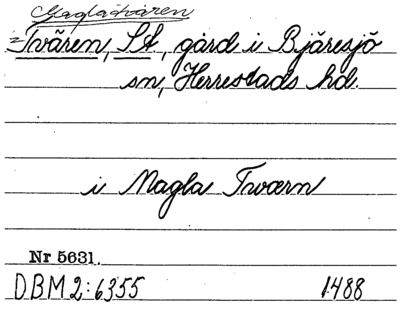 Magla Tvären
= Tvären, St., gård i Bjäresjö
sn, Herrestads hd.
i Magla Twærn
Nr 5631.
DBM 2:6355 1488